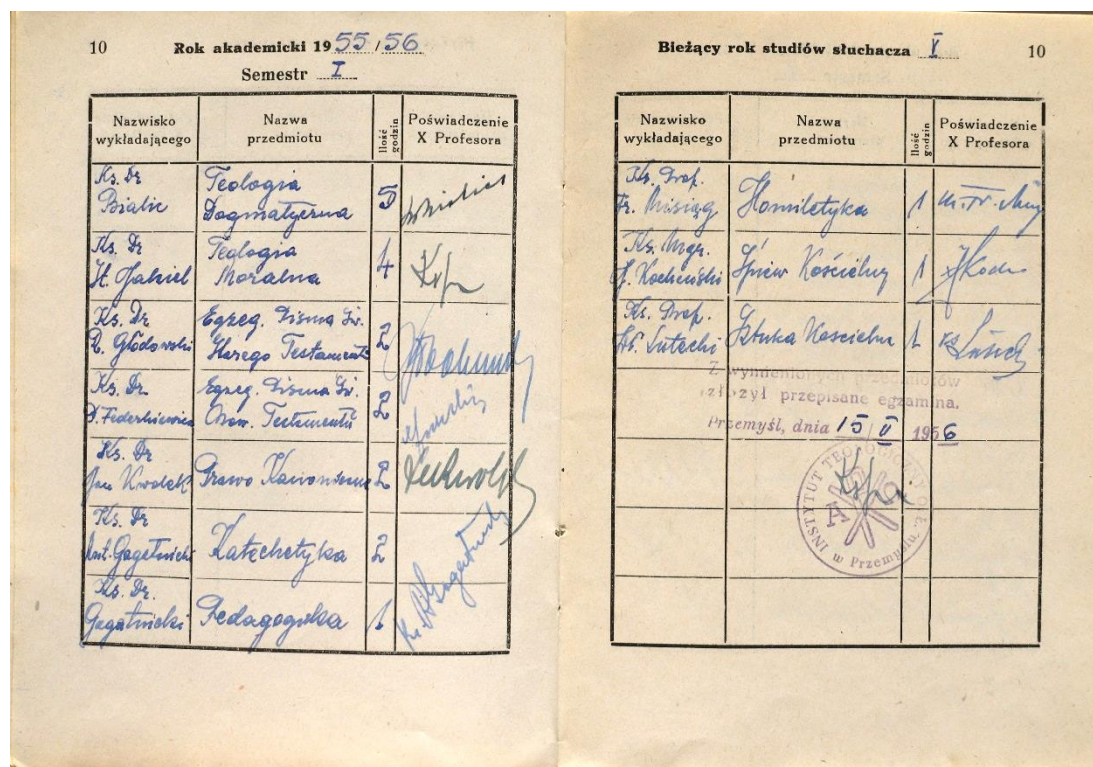 10 Rok akademicki 1955/56
Semestr I
Nazwisko wykładającego
Nazwa przedmiotu
Ilość godzin
Poświadczenie X Profesora
Ks. Dr
Teologia
Bialic
Dogmatyczna
5
Ks. Dr
Teologia
H. Jakiel
Moralna
4
Ks. Dr
Egzeg. Pisma Św.
Głodowski
Starego Testamentu
2
Ks. Dr
Egzeg. Pisma Św.
Federkiewicz
Testamentu
2
Ks. Dr
Jan Kwolek
Prawo Kanoniczne
2
Ks. Dr
Gagatnicki
Katechetyka
2
Ks. Dr.
Gagatnicki
Pedagogika
1
Bieżący rok studiów słuchacza V 10
Nazwisko wykładającego
Nazwa przedmiotu
Ilość godzin
Poświadczenie X Profesora
Ks. Prof.
Fr. Misiąg
Homiletyka
1
Ks. Mgr.
Śpiew Kościelny
1
Ks. Prof.
Lutecki
Sztuka Kościelna
1
Z wymienionych przedmiotów
złożył przepisane egzamina.
Przemyśl, dnia 15/V 1956
INSTYTUT TEOLOGICZNY
w Przemyślu.